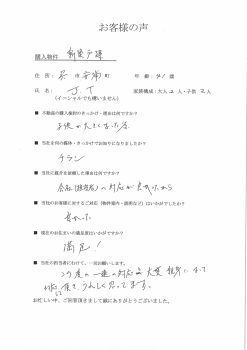 お客様の声
購入物件 新築戸建
住所: 市 町 年齢: 41歳
氏名: J.T 家族構成:大人2人・子供2人
(イニシャルでも構いません)
■ 不動産の購入検討のきっかけ・理由は何ですか?
子供が大きくなった為
■ 当社を何の媒体・きっかけでお知りになりましたか?
チラシ
■ 当社に仲介を依頼した理由は何ですか?
会社(担当者)の対応が良かったから
■ 当社のお客様に対するご対応(物件案内・説明など)はいかがでしたか?
良かった
■ 現在のお住まいの満足度はいかがですか?
満足!
■ 当社の担当者にむけて、一言お願いします。
この度の一連の対応、大変 親身になって
頂き、うれしく思ってます。
お忙しい中、ご回答頂きまして誠にありがとうございました。